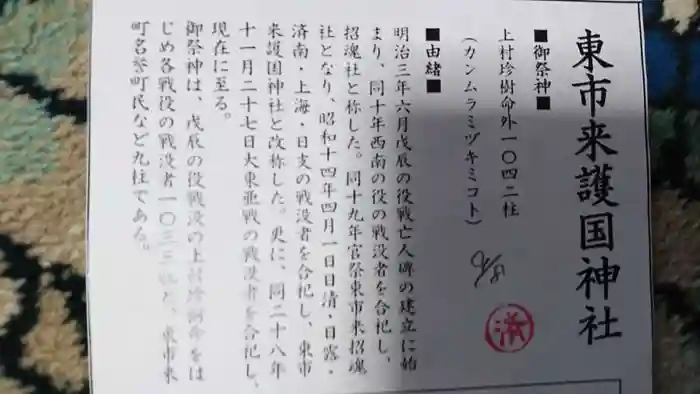 東市来護国神社
■御祭神■
上村珍樹命外一〇四二柱
(カンムラミヅキミコト)
6/8
済
■由緒■
明治三年六月戊辰の役戦亡人碑の建立に始
まり、同十年西南の役の戦没者を合祀し、
招魂社と称した。同十九年官祭東市来招魂
社となり、昭和十四年四月一日日清・日露・
済南・上海・日支の戦没者を合祀し、東市
来護国神社と改称した。更に、同二十八年
十一月二十七日大東亜戦の戦没者を合祀し、
現在に至る。
御祭神は、戊辰の役戦没の上村珍樹命をは
じめ各戦役の戦没者一〇三三柱と、東市来
町名誉町民など九柱である。